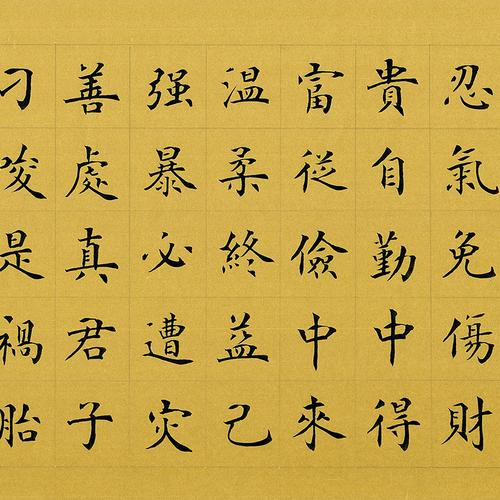 忍氣免傷財
貴自勤中得
富從儉中來
温柔終益己
强暴必遭灾
善處真君子
刁唆是禍胎